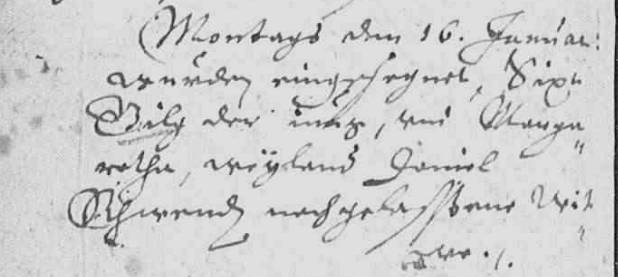 Montags den 16. Januar:
wurden eingesegnet, Sixt
Gilg der jung, und Marga„
retha, weyland Daniel
Schwenden nachgelassene Wit„
we ./.